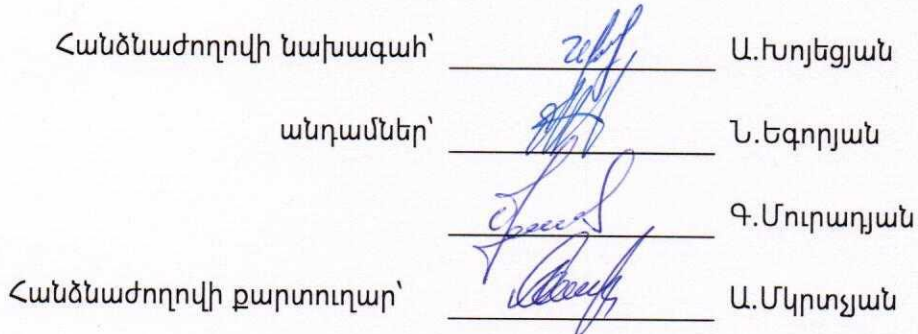 Հանձնաժողովի նախագահ՝ Ա.Խոյեցյան
անդամներ՝ Ն.Եգորյան
Գ.Մուրադյան
Հանձնաժողովի քարտուղար՝ Ա.Մկրտչյան